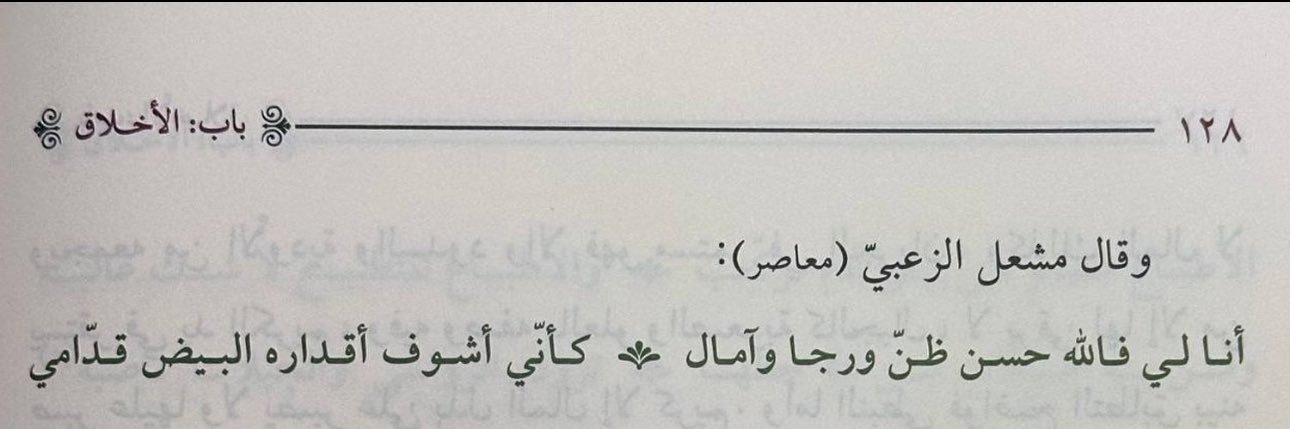 ١٢٨ باب: الأخلاق
وقال مشعل الزعبيّ (معاصر):
أنا لي فالله حسن ظنّ ورجا وآمال كأنّي أشوف أقداره البيض قدّامي